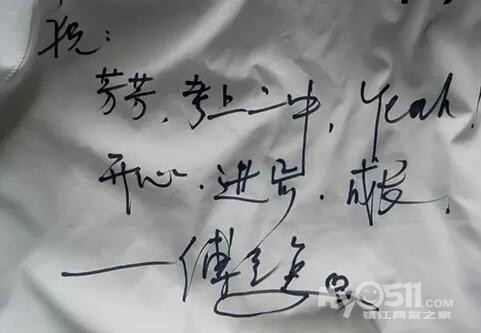 祝：
芳芳，考上一中，Yeah！
开心、进步、成长，
——傅
my0511.com
镇江网友之家